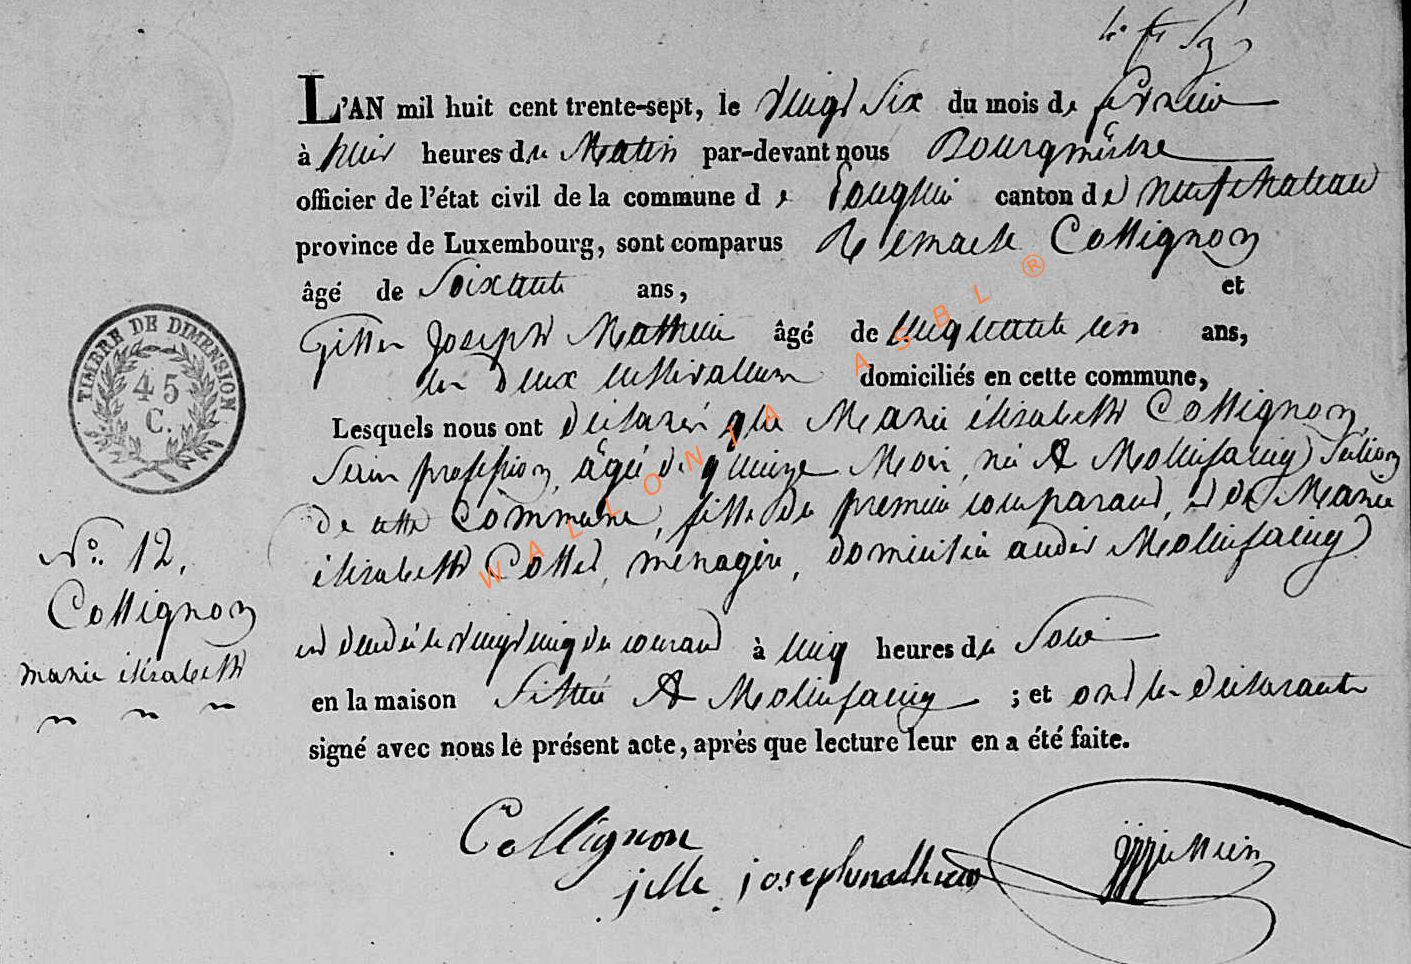 L'AN mil huit cent trente-sept, le vingt six du mois de fevrier
à huit heures du Matin par-devant nous Bourgmêstre
officier de l'état civil de la commune de Longlier canton de neufchateau
province de Luxembourg, sont comparus Remacle Collignon
âgé de Soixante ans, et
Gille Joseph Mathieu âgé de cinquante un ans,
les deux cultivateurs domiciliés en cette commune,
Lesquels nous ont déclaré que Marie élisabeth Collignon,
Sans profession, âgée de quinze Mois, née A Molinfaing Section
de cette Commune, fille du premier comparant, et de Marie
élisabeth Collet, ménagère, domiciliée audit Molinfaing
est décédée le vingt cinq du courant à cinq heures du Soir
en la maison Située A Molinfaing ; et ont les déclarants
signé avec nous le présent acte, après que lecture leur en a été faite.
TIMBRE DE DIMENSION
45
C.
N° 12,
Collignon
marie élisabeth
WALLONIA ASBL ®
Collignon
jille joseph mathieu